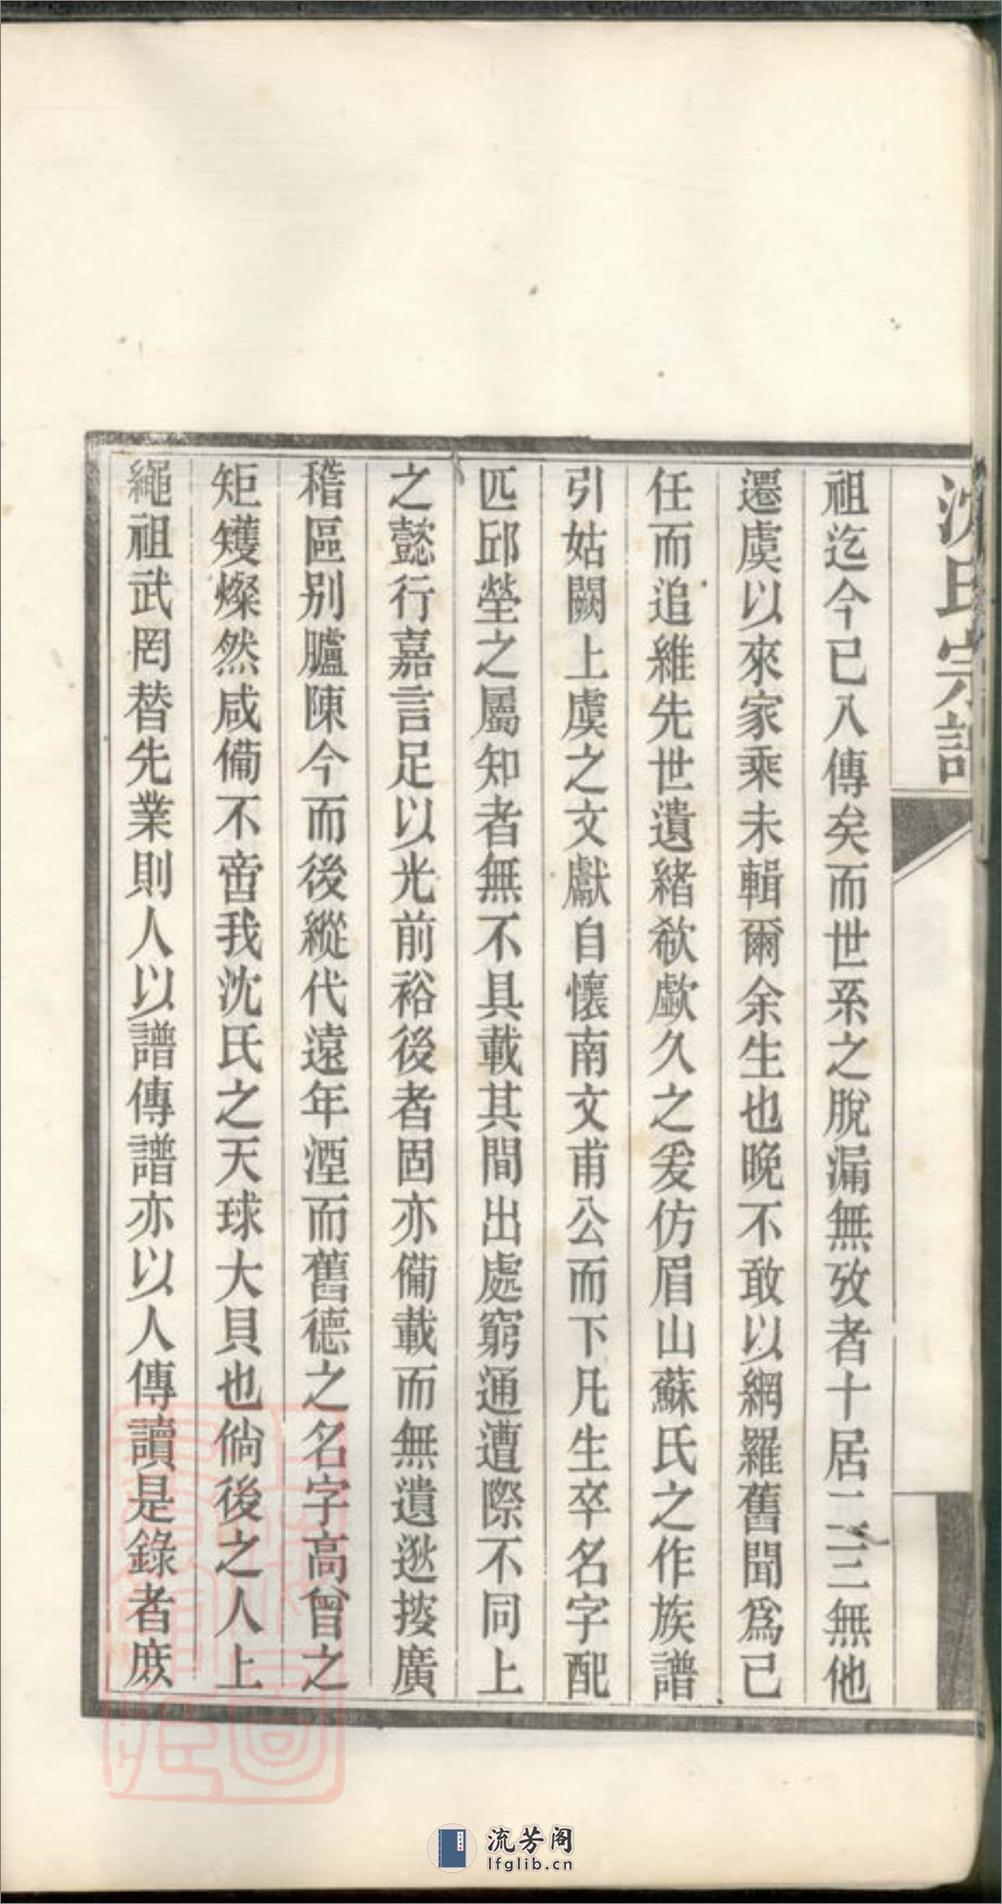 沈氏宗譜
祖迄今已八傳矣而世系之脫漏無攷者十居二三無他
遷虞以來家乘未輯爾余生也晚不敢以網羅舊聞爲己
任而追維先世遺緒欷歔久之爰仿眉山蘇氏之作族譜
引姑闕上虞之文獻自懷南文甫公而下凡生卒名字配
匹邱塋之屬知者無不具載其間出處窮通遭際不同上
之懿行嘉言足以光前裕後者固亦備載而無遺逖接廣
稽區别臚陳今而後縱代遠年湮而舊德之名字高曾之
矩矱燦然咸備不啻我沈氏之天球大貝也倘後之人上
繩祖武罔替先業則人以譜傳譜亦以人傳讀是錄者庶
流芳阁
lfglib.cn